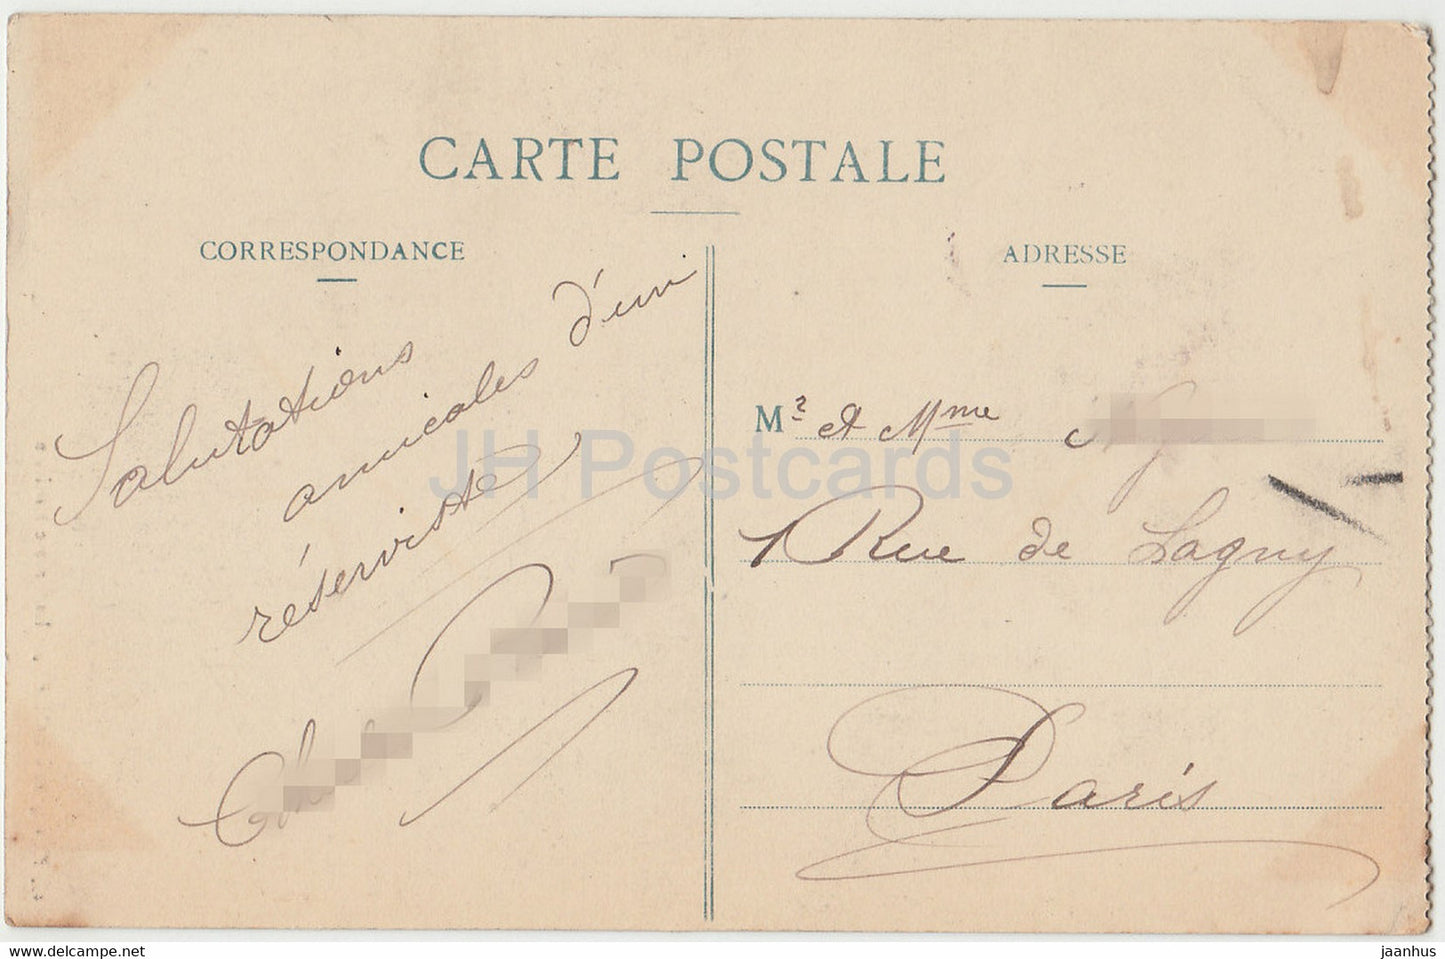 CARTE POSTALE
CORRESPONDANCE
Salutations
amicales d'un
réserviste
ADRESSE
Mr et Mme
1 Rue de Lagny
Paris
JH Postcards
www.delcampe.net
jaanhus